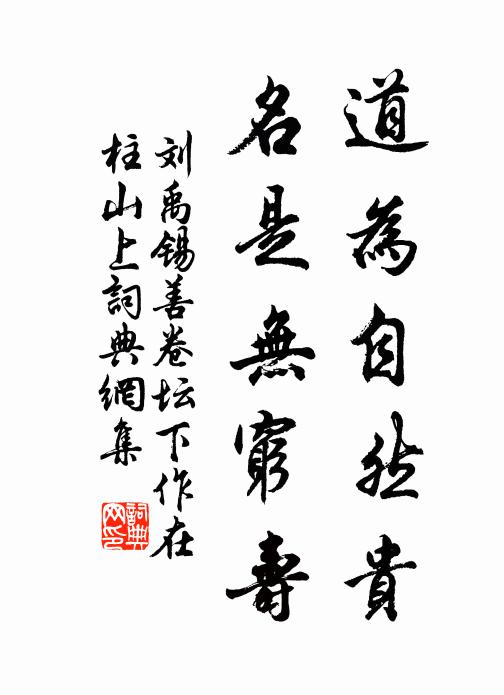 道為自然貴
名是無窮壽
刘禹锡善卷坛下作在
柱山上詞典網集
詞典
网印